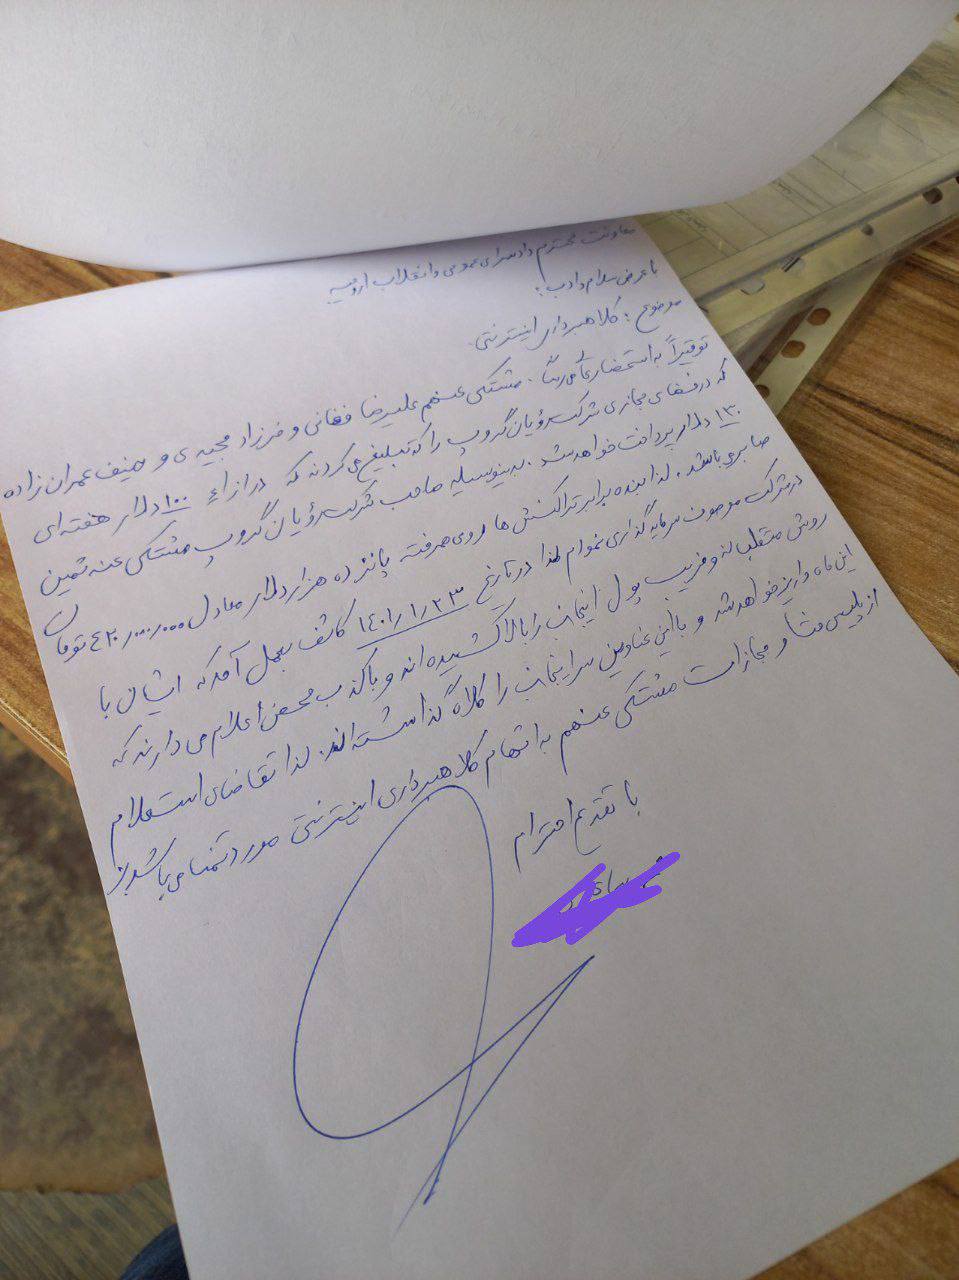 معاونت محترم دادسرای عمومی و انقلاب ارومیه
با عرض سلام و ادب:
موضوع: کلاهبرداری اینترنتی
توقیراً به استحضار عالی می‌رساند. مشتکی عنهم علیرضا فغانی و فرزاد مجیدی و منیف عمران زاده
که در فضای مجازی شرکت رؤیان گروپ را که تبلیغ می‌کردند که در ازاء ۱۰۰ دلار هفته‌ای
۱۳۰ دلار پرداخت خواهد شد. بدینوسیله صاحب شرکت رؤیان گروپ مشتکی عنه ثمین
صابری می‌باشد. لذا بنده برابر تراکنش ها روی همرفته پانزده هزار دلار معادل ۴۲۰،۰۰۰،۰۰۰ تومان
در شرکت موصوف سرمایه گذاری نموده‌ام لذا در تاریخ ۱۴۰۱/۱/۲۳ کاشف بعمل آمد که ایشان با
روش متقلبانه و فریب پول اینجانب را بالا کشیده‌اند و با کذب محض اعلام می‌دارند که
این ماه واریز خواهد شد و با این عناوین سر اینجانب را کلاه گذاشته‌اند. لذا تقاضای استعلام
از پلیس فتا و مجازات مشتکی عنهم به اتهام کلاهبرداری اینترنتی مورد تمنا می‌باشد
با تقدیم احترام